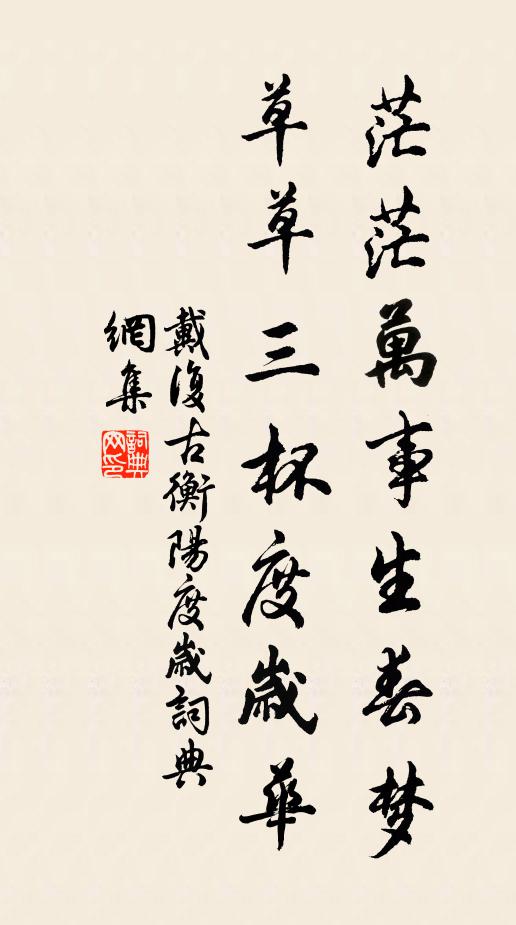 茫茫萬事生春梦
草草三杯度歲華
戴復古衡陽度歲詞典
網集
詞典网印